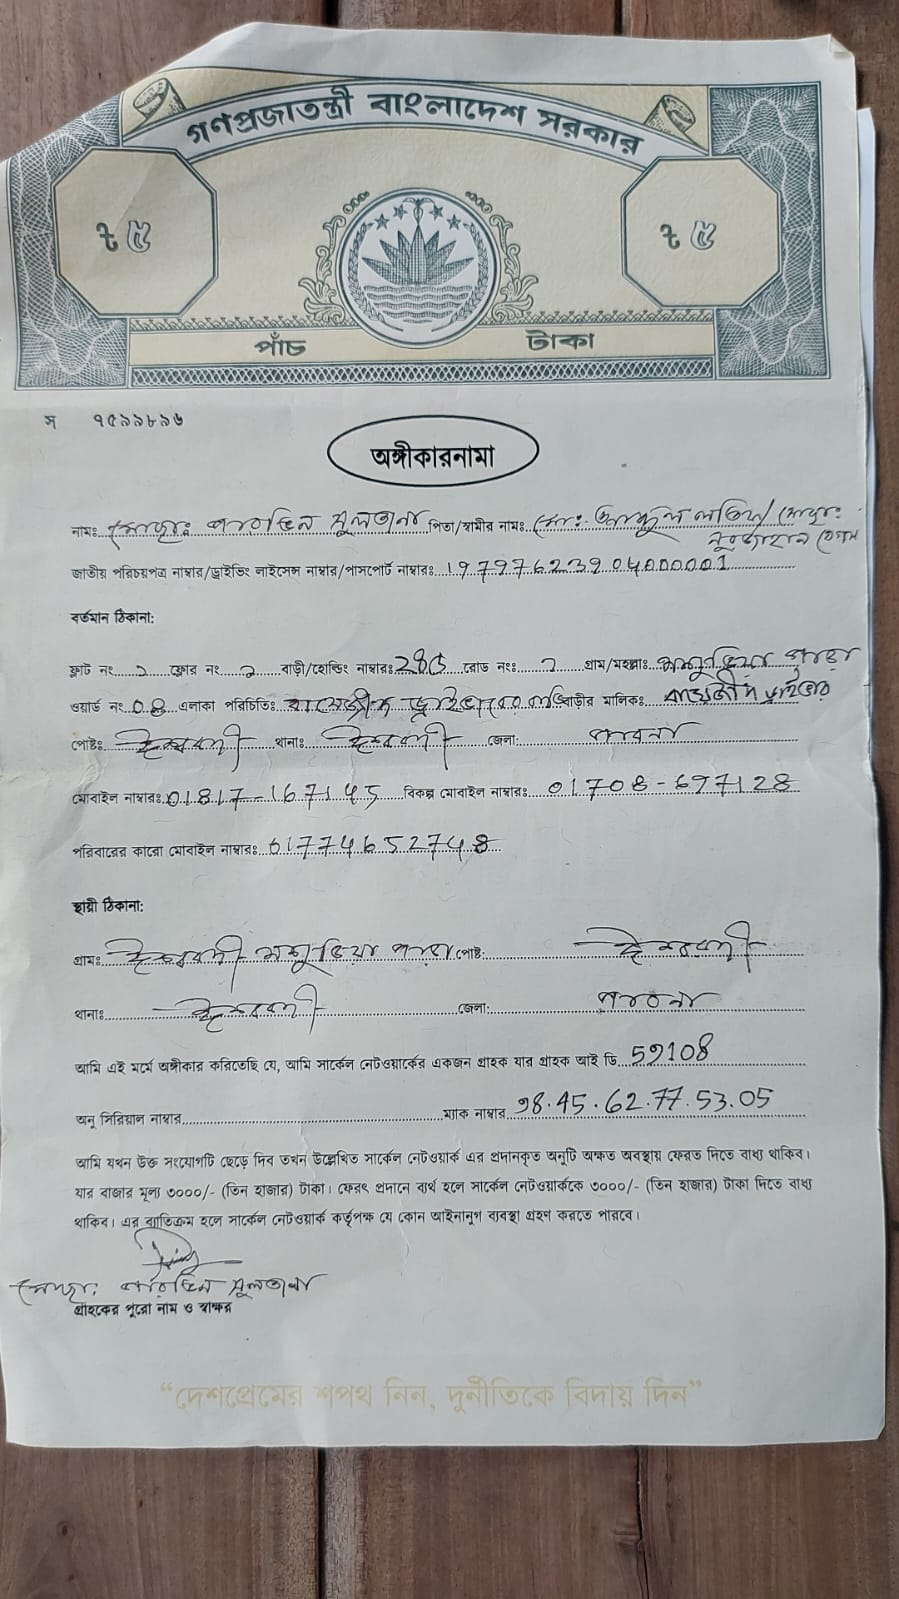 গণপ্রজাতন্ত্রী বাংলাদেশ সরকার
৳ ৫ ৳ ৫
পাঁচ টাকা
স ৭৫৯৯৮৯৬
অঙ্গীকারনামা
নামঃ মোছাঃ পারভিন সুলতানা পিতা/স্বামীর নামঃ মোঃ আব্দুল লতিফ/মোছাঃ
নুরজাহান বেগম
জাতীয় পরিচয়পত্র নাম্বার/ড্রাইভিং লাইসেন্স নাম্বার/পাসপোর্ট নাম্বারঃ 19797623904000001
বর্তমান ঠিকানা:
ফ্লাট নং ফ্লোর নং বাড়ী/হোল্ডিং নাম্বারঃ রোড নংঃ গ্রাম/মহল্লাঃ পাড়া
ওয়ার্ড নং 08 এলাকা পরিচিতিঃ বাড়ীর মালিকঃ
পোষ্টঃ ঈশ্বরদী থানাঃ ঈশ্বরদী জেলা: পাবনা
মোবাইল নাম্বারঃ 01817-167145 বিকল্প মোবাইল নাম্বারঃ 01708-697128
পরিবারের কারো মোবাইল নাম্বারঃ
স্থায়ী ঠিকানা:
গ্রামঃ ঈশ্বরদী পাড়া পোষ্ট: ঈশ্বরদী
থানাঃ ঈশ্বরদী জেলা: পাবনা
আমি এই মর্মে অঙ্গীকার করিতেছি যে, আমি সার্কেল নেটওয়ার্কের একজন গ্রাহক যার গ্রাহক আই ডি 59108
অনু সিরিয়াল নাম্বার ম্যাক নাম্বার 98.45.62.77.53.05
আমি যখন উক্ত সংযোগটি ছেড়ে দিব তখন উল্লেখিত সার্কেল নেটওয়ার্ক এর প্রদানকৃত অনুটি অক্ষত অবস্থায় ফেরত দিতে বাধ্য থাকিব।
যার বাজার মূল্য ৩০০০/- (তিন হাজার) টাকা। ফেরৎ প্রদানে ব্যর্থ হলে সার্কেল নেটওয়ার্ককে ৩০০০/- (তিন হাজার) টাকা দিতে বাধ্য
থাকিব। এর ব্যতিক্রম হলে সার্কেল নেটওয়ার্ক কর্তৃপক্ষ যে কোন আইনানুগ ব্যবস্থা গ্রহণ করতে পারবে।
মোছা: পারভিন সুলতানা
গ্রাহকের পুরো নাম ও স্বাক্ষর
“দেশপ্রেমের শপথ নিন, দুর্নীতিকে বিদায় দিন”